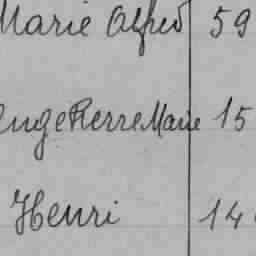 Marie Alfred 59
Ange Pierre Marie 15
Henri 14